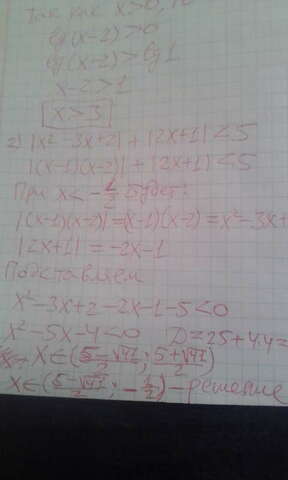 Так как x>0, то
lg(x-2)>0
lg(x-2)>lg1
x-2>1
x>3
2) |x²-3x+2|+|2x+1|<5
|(x-1)(x-2)|+|2x+1|<5
При x<-1/2 будет:
|(x-1)(x-2)|=(x-1)(x-2)=x²-3x+
|2x+1|=-2x-1
Подставляем
x²-3x+2-2x-1-5<0
x²-5x-4<0 D=25+4.4=
x∈(5-√41/2; 5+√41/2)
x∈(5-√41/2; -1/2) - решение